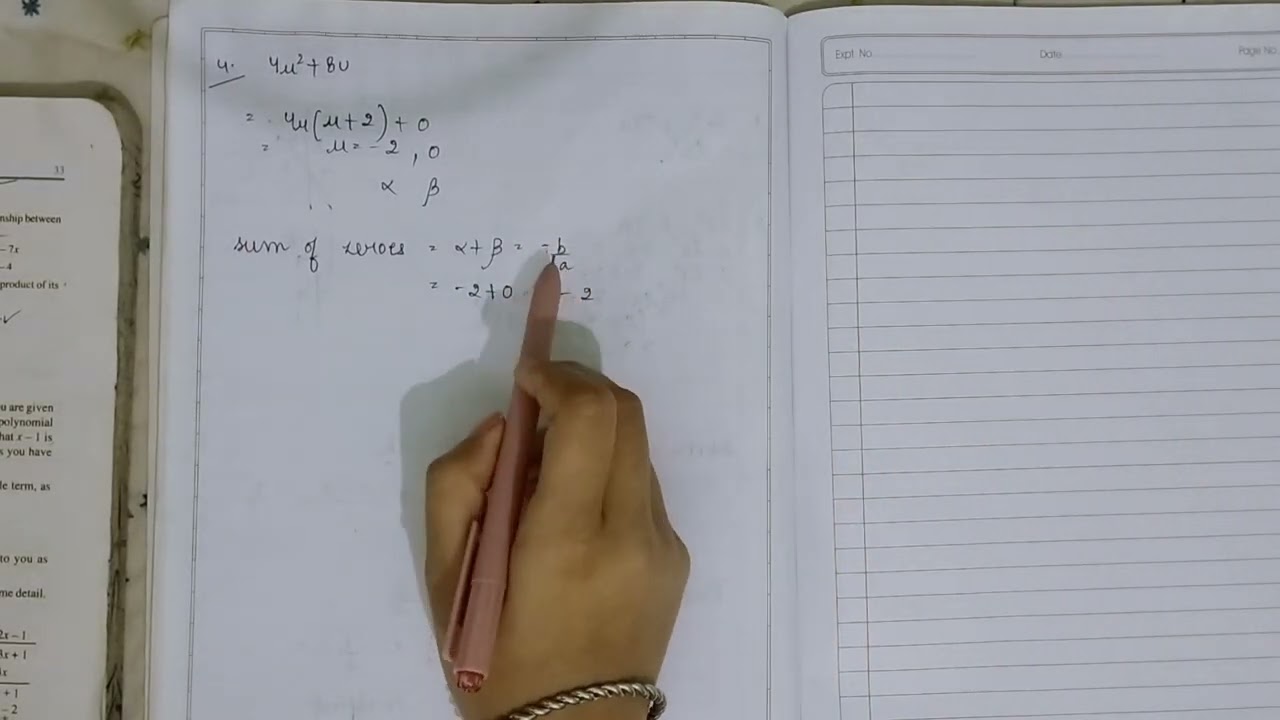 33
nship between
-7x
-4
product of its
u are given
polynomial
hat x - 1 is
s you have
le term, as
to you as
me detail.
2x - 1
3x + 1
+ 1
- 2
4. 4u² + 8u
= 4u(u+2) + 0
= u = -2, 0
α β
sum of zeroes = α + β = -b/a
= -2+0 - 2
Expt No.
Date
Page No